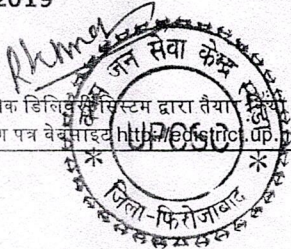 2019
जन सेवा केन्द्र
क डिलिवरी सिस्टम द्वारा तैयार किया
पत्र वेबसाइट http://edistrict.up.
UPCSC
जिला-फिरोजाबाद